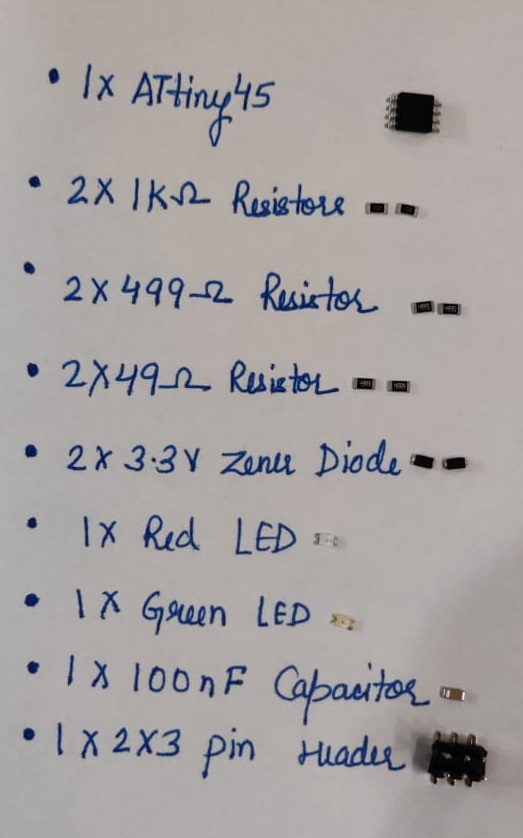 • 1x ATtiny45
• 2X 1KΩ Resistors
• 2X499Ω Resistor
• 2X49Ω Resistor
• 2X 3.3V Zener Diode
• 1X Red LED
• 1X Green LED
• 1X 100nF Capacitor
• 1X2X3 pin Header